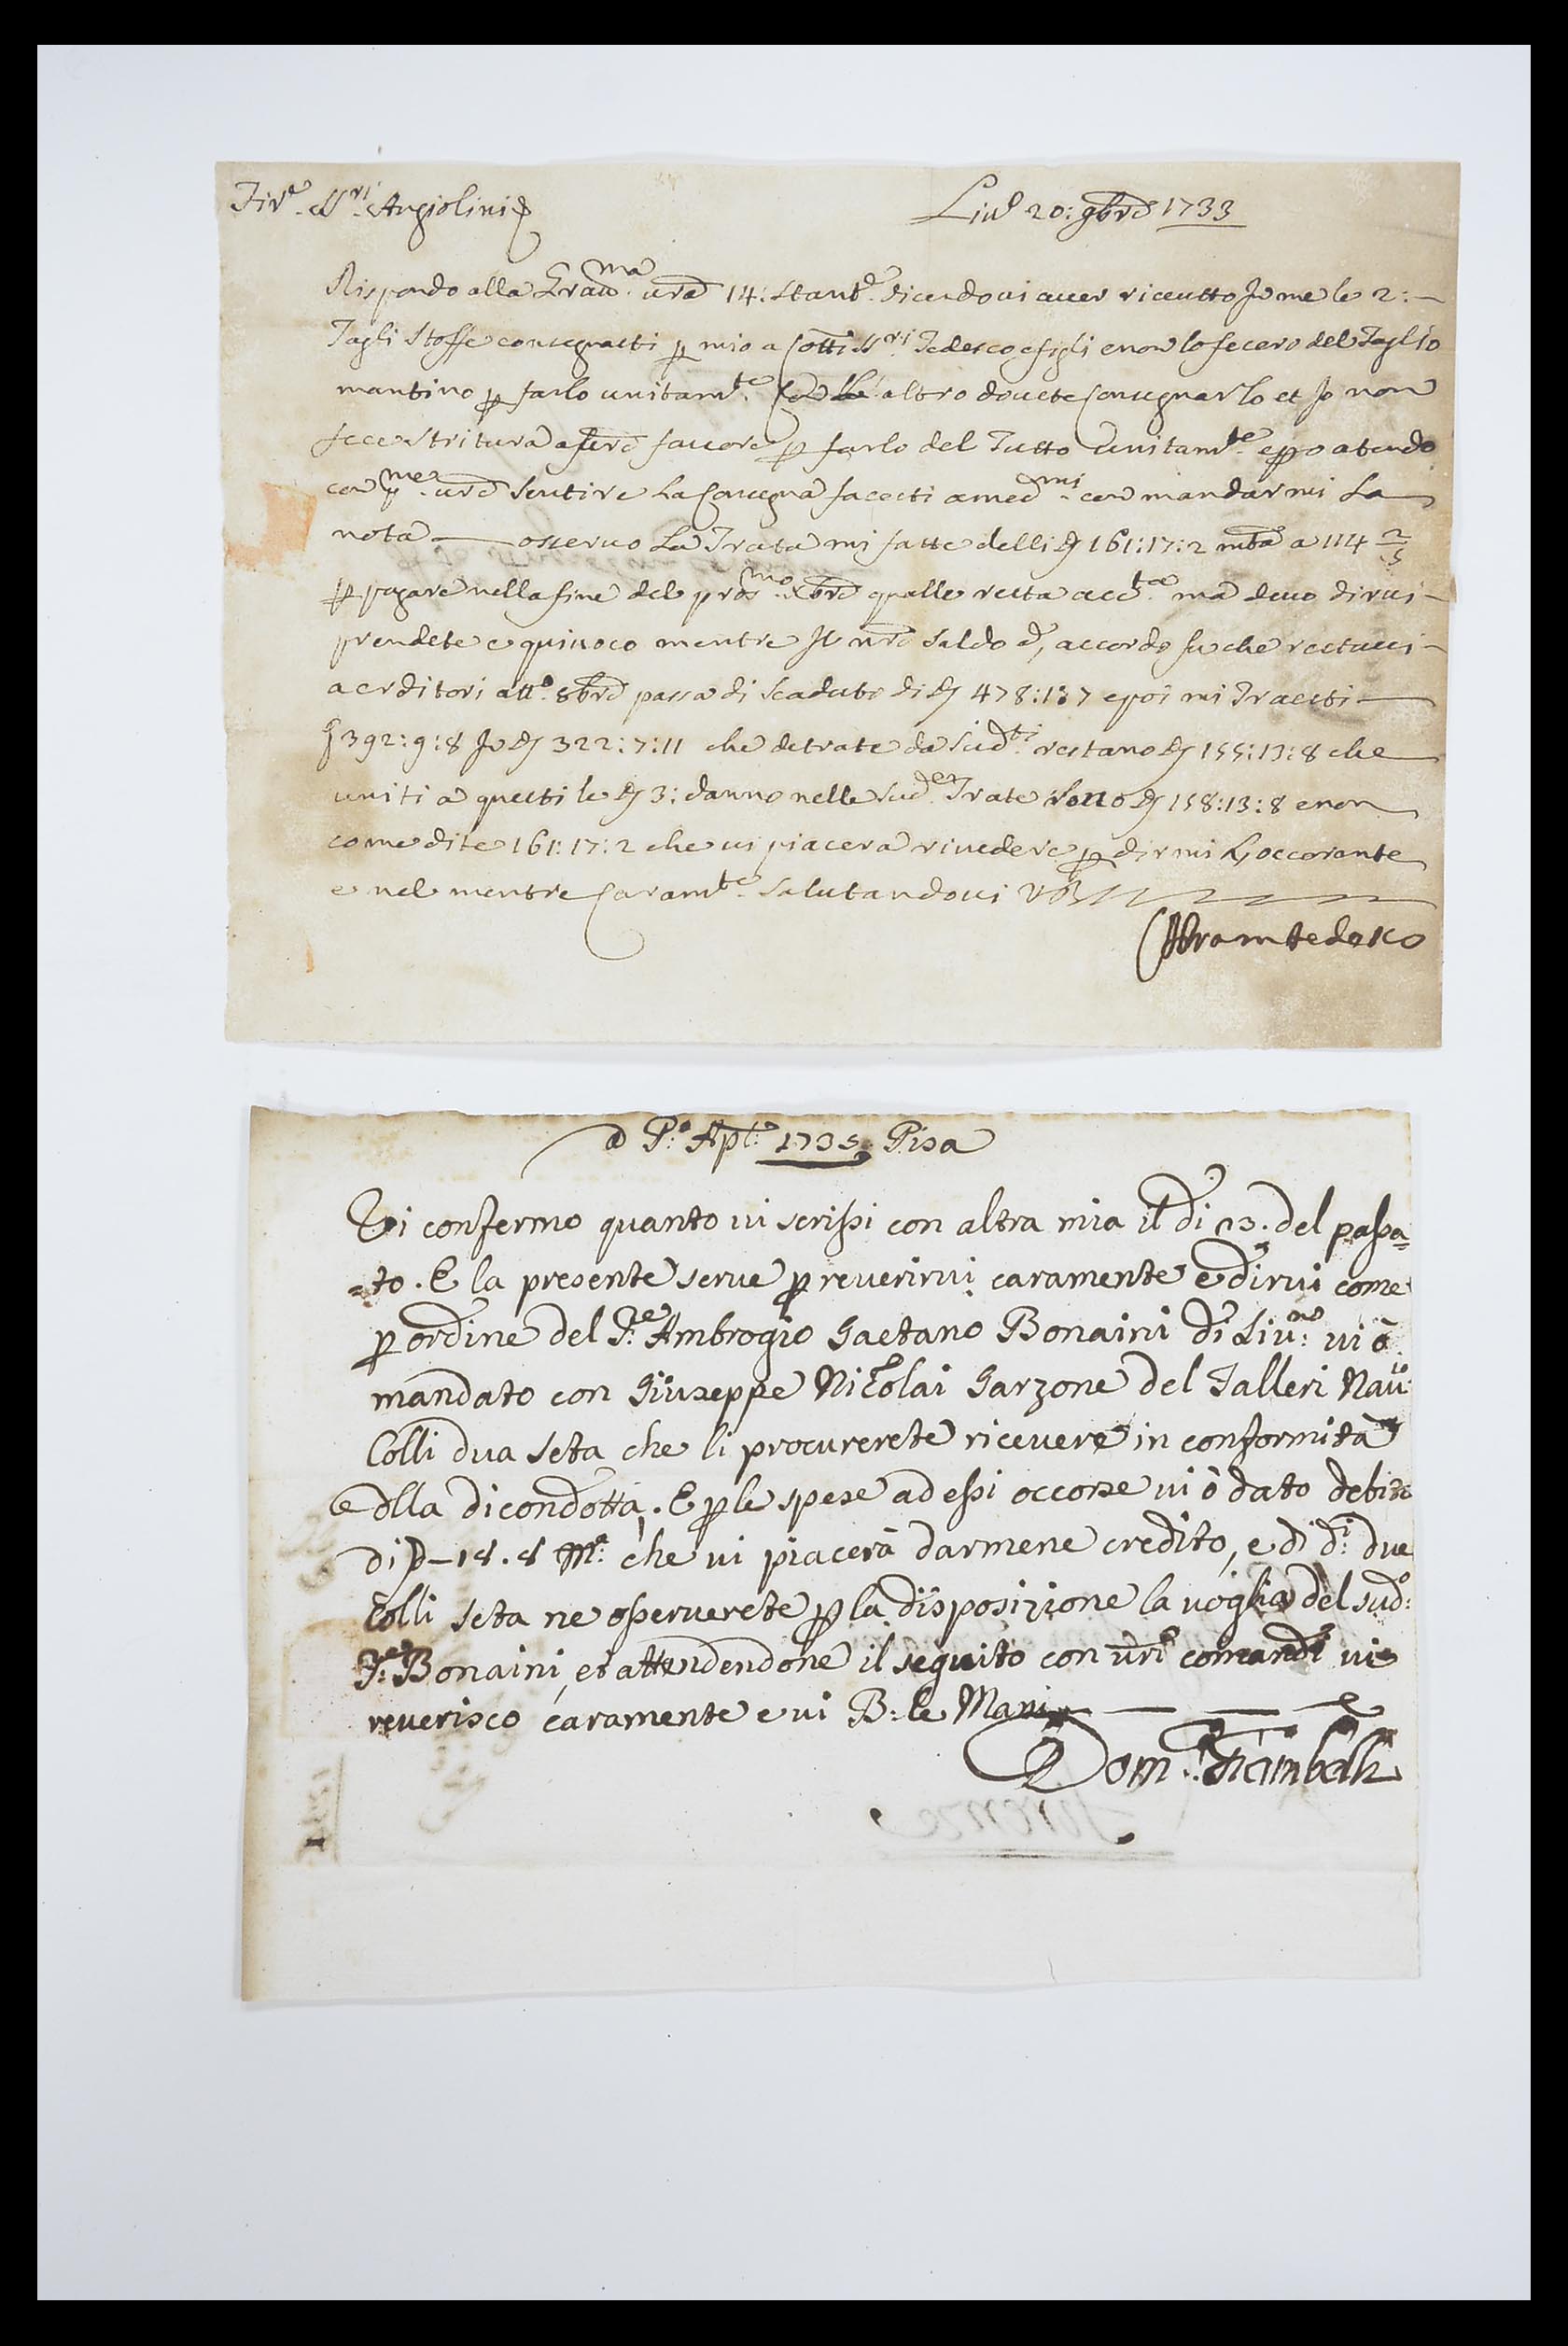 Fir.e SS.ri Angiolini
Liv.o 20: 9bre 1733
Rispondo alla Gra.ma vra 14: stant.e dicendovi aver riceutto Io me le 2:-
Tagli Stoffe consegnatti p mio a Cotti SS.ri Tedesco e figli e non lo fecero del Taglio
mantino p farlo unitam.te altro dovete Consegnarlo et Io non
fece stritura a favore p farlo del Tutto Unitam.te e po atendo
con p.mer vra sentire La Consegna facesti a med.mi con mandarmi La
nota — osservo La Trata mi fatte delli 161:17:2 mta a 114 2/5
p pagare nella fine del pros.mo Xbre qualle resta acc.ta ma devo dirvi -
prendete equivoco mentre Il nro saldo d, accordo fu che restavi -
a crditori att.o 8bre passa di scaduto di 478:1 7 e poi mi Traesti —
392:9:8 Io 322:7:11 che detrate da sud.ti restano 155:13:8 che
uniti a questi le 3: danno nelle sud.er Trate sono 158:13:8 e non
come dite 161:17:2 che vi piacera rivedere p dirmi L, occorente
e nel mentre Caram.te salutandovi VB
Abram tedesco
a P.o Apl.e 1735 Pisa
Vi confermo quanto vi scrissi con altra mia il di 23. del passa=
=to. E la presente serve p reverirvi caramente e dirvi come
p ordine del S.re Ambrogio Gaetano Bonaini di Liv.no: vi ò
mandato con Giuseppe Nicolai Garzone del Talleri Nav.o:
Colli dua Seta che li procurerete ricevere in conformità
e dlla di condotta. E p le spese ad essi occorse vi ò dato debito
di p—18.8 M.a: che vi piacerà darmene credito, e di d.i: due
Colli Seta ne osserverete p la disposizione la voglia del sud.o:
S.re Bonaini, et attendendone il seguito con vri comandi vi
reverisco caramente e vi B: le Mani
Dom.o